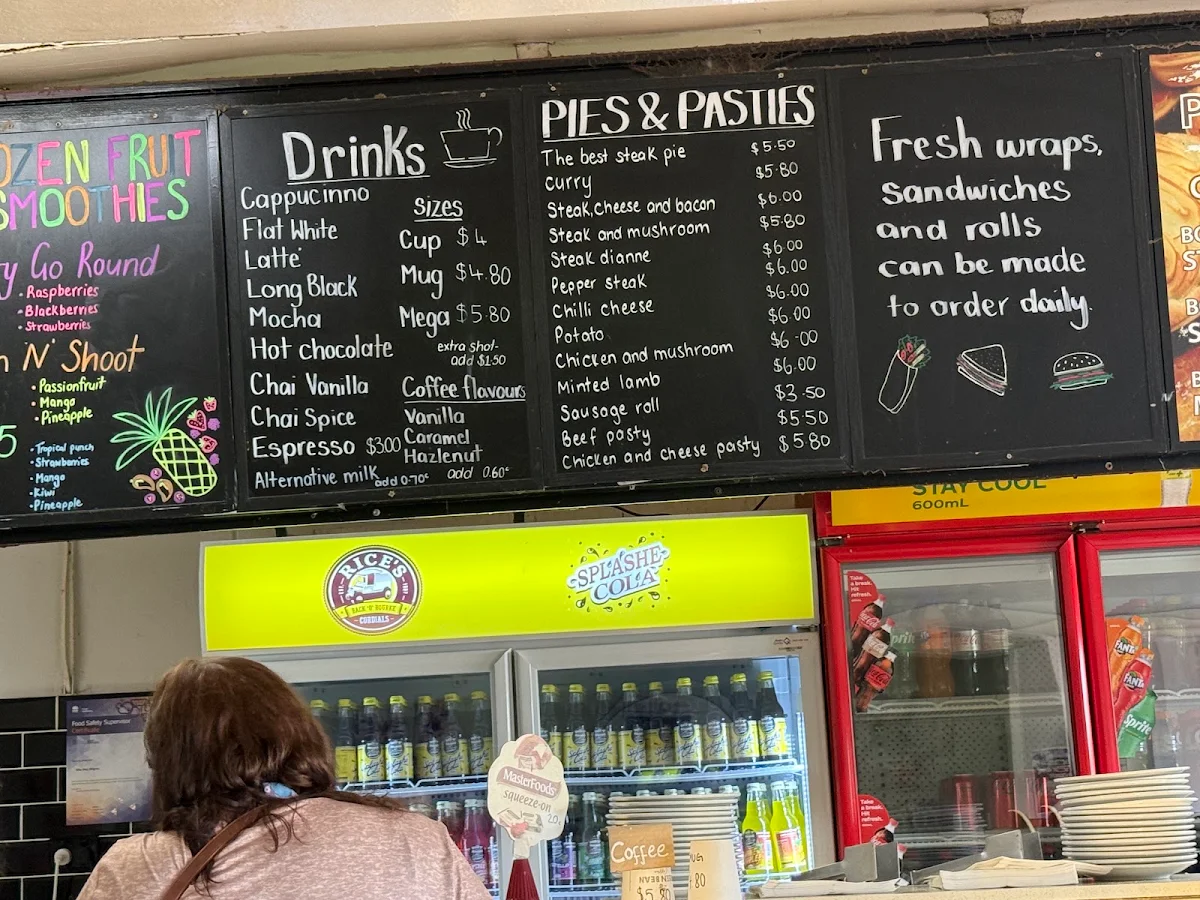 OZEN FRUIT
SMOOTHIES
y Go Round
• Raspberries
• Blackberries
• Strawberries
n N' Shoot
• Passionfruit
• Mango
• Pineapple
5
• Tropical punch
• Strawberries
• Mango
• Kiwi
• Pineapple
Drinks
Cappucinno
Flat White
Latte
Long Black
Mocha
Hot chocolate
Chai Vanilla
Chai Spice
Espresso $3.00
Alternative milk add 0.70¢
Sizes
Cup $4
Mug $4.80
Mega $5.80
extra shot-
add $1.50
Coffee flavours
Vanilla
Caramel
Hazlenut
add 0.60¢
PIES & PASTIES
The best steak pie $5.50
Curry $5.80
Steak, cheese and bacon $6.00
Steak and mushroom $5.80
Steak dianne $6.00
Pepper steak $6.00
Chilli cheese $6.00
Potato $6.00
Chicken and mushroom $6.00
Minted lamb $6.00
Sausage roll $3.50
Beef pasty $5.50
Chicken and cheese pasty $5.80
Fresh wraps,
sandwiches
and rolls
can be made
to order daily.
STAY COOL
600mL
RICE'S
BACK 'O' BOURKE
CORDIALS
SPLASHE
COLA
Food Safety Supervisor
Certificate
Take
a break.
Hit
refresh.
Coca-Cola
Sprite
FANTA
FANTA
Sprite
MasterFoods
squeeze-on
20¢
Coffee
BEAN
$5.80
MUG
.80
Take
a break.
Hit
refresh.